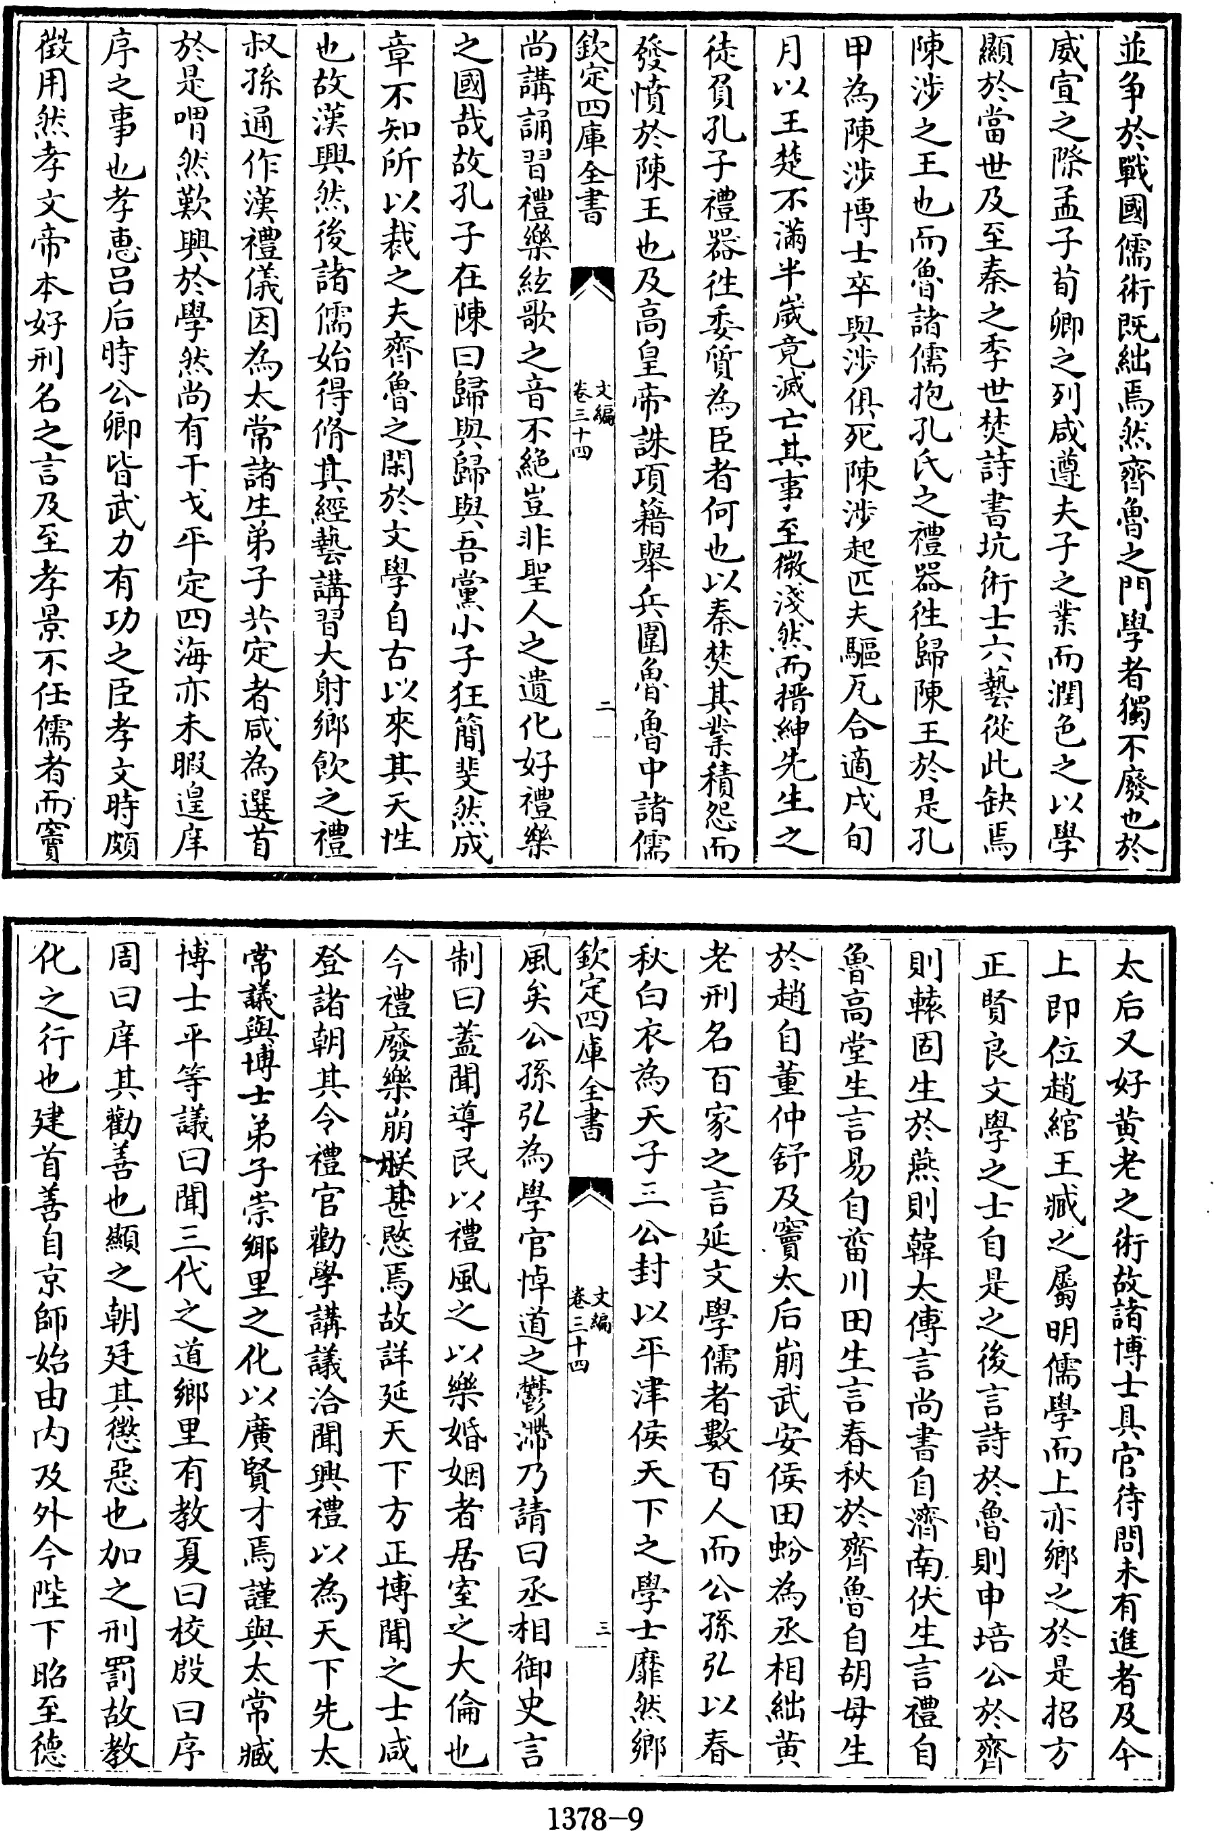 並争於戰國儒術既絀焉然齊魯之門學者獨不廢也於
威宣之際孟子荀卿之列咸遵夫子之業而潤色之以學
顯於當世及至秦之季世焚詩書坑術士六藝從此缺焉
陳涉之王也而魯諸儒抱孔氏之禮器徃歸陳王於是孔
甲為陳涉博士卒與涉俱死陳涉起匹夫驅瓦合適戍旬
月以王楚不滿半嵗竟滅亡其事至微淺然而搢紳先生之
徒負孔子禮器徃委質為臣者何也以秦焚其業積怨而
發憤於陳王也及高皇帝誅項籍舉兵圍魯魯中諸儒
欽定四庫全書
文編
卷三十四
二
尚講誦習禮樂絃歌之音不絶豈非聖人之遺化好禮樂
之國哉故孔子在陳曰歸與歸與吾黨小子狂簡斐然成
章不知所以裁之夫齊魯之閑於文學自古以來其天性
也故漢興然後諸儒始得脩其經藝講習大射鄉飲之禮
叔孫通作漢禮儀因為太常諸生弟子共定者咸為選首
於是喟然歎興於學然尚有干戈平定四海亦未暇遑庠
序之事也孝惠吕后時公卿皆武力有功之臣孝文時頗
徵用然孝文帝本好刑名之言及至孝景不任儒者而竇
太后又好黄老之術故諸博士具官待問未有進者及今
上即位趙綰王臧之屬明儒學而上亦鄉之於是招方
正賢良文學之士自是之後言詩於魯則申培公於齊
則轅固生於燕則韓太傅言尚書自濟南伏生言禮自
魯高堂生言易自菑川田生言春秋於齊魯自胡母生
於趙自董仲舒及竇太后崩武安侯田蚡為丞相絀黄
老刑名百家之言延文學儒者數百人而公孫弘以春
秋白衣為天子三公封以平津侯天下之學士靡然鄉
欽定四庫全書
文編
卷三十四
三
風矣公孫弘為學官悼道之鬱滯乃請曰丞相御史言
制曰蓋聞導民以禮風之以樂婚姻者居室之大倫也
今禮廢樂崩朕甚愍焉故詳延天下方正博聞之士咸
登諸朝其令禮官勸學講議洽聞興禮以為天下先太
常議與博士弟子崇鄉里之化以廣賢才焉謹與太常臧
博士平等議曰聞三代之道鄉里有教夏曰校殷曰序
周曰庠其勸善也顯之朝廷其懲惡也加之刑罰故教
化之行也建首善自京師始由内及外今陛下昭至德
1378-9